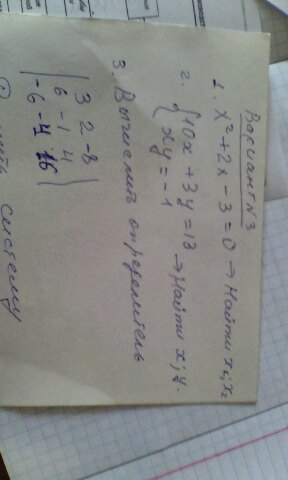 Вариант №3
1. x² + 2x - 3 = 0 → Найти x₁, x₂
2. { 10x + 3y = 13
xy = -1 → Найти x; y.
3. Вычислить определитель
| 3 2 -8
6 -1 4
-6 -4 16 |
систему